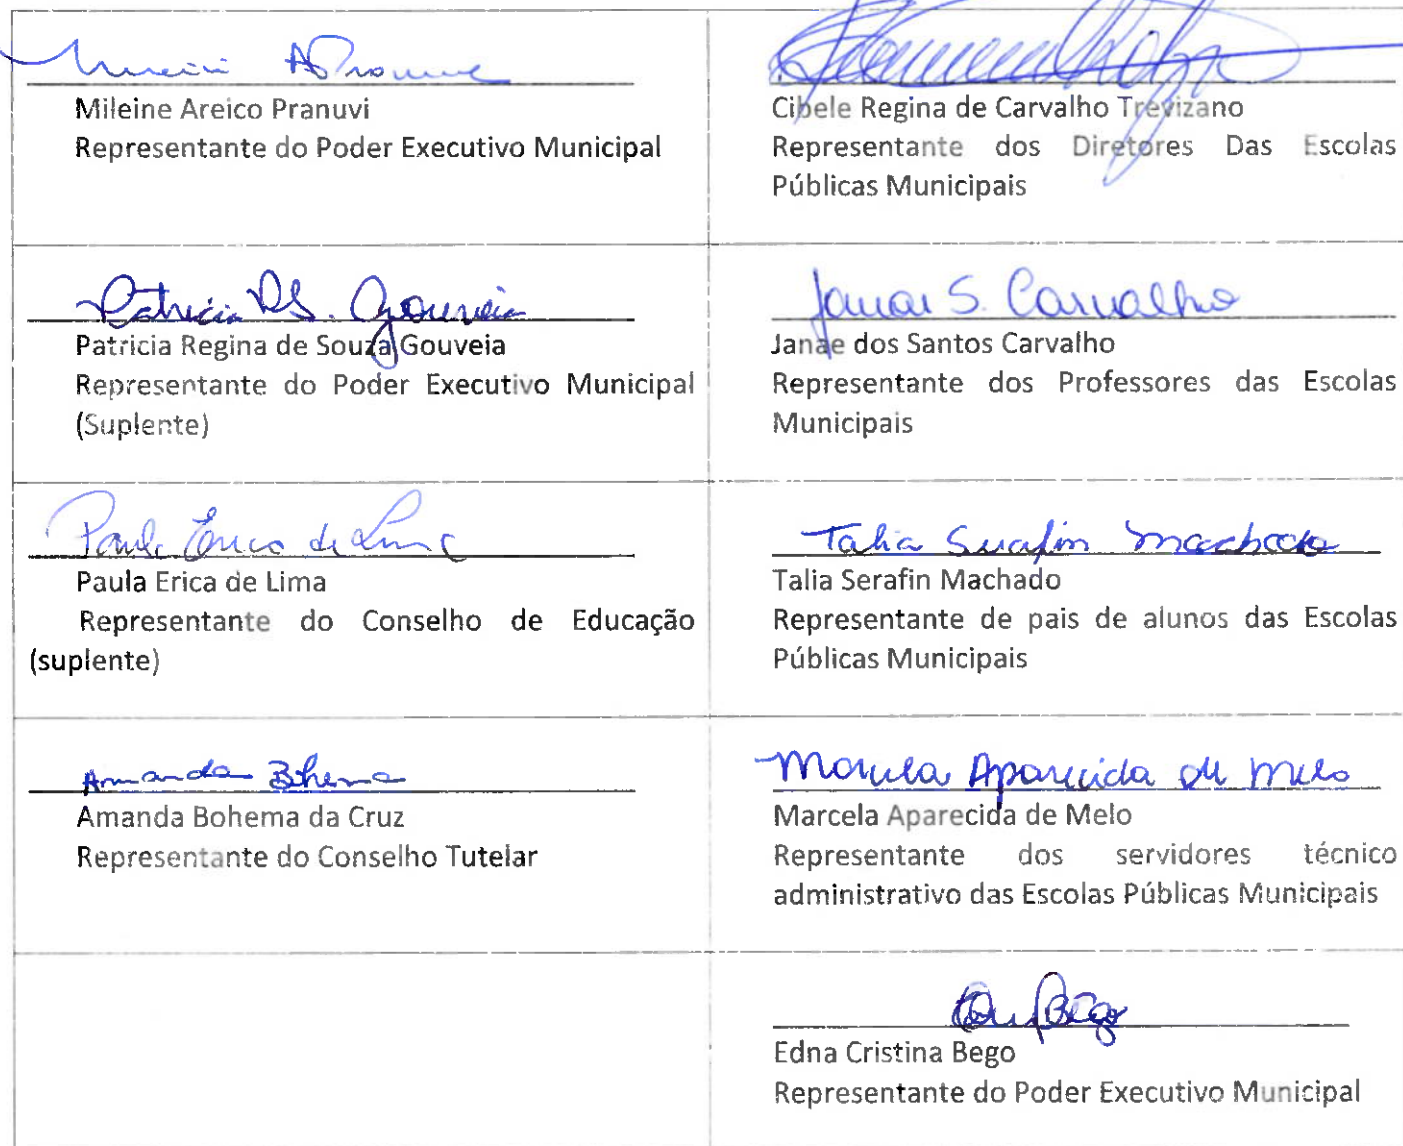 Mileine Areico Pranuvi
Representante do Poder Executivo Municipal
Cibele Regina de Carvalho Trevizano
Representante dos Diretores Das Escolas
Públicas Municipais
Patricia RS. Gouveia
Patricia Regina de Souza Gouveia
Representante do Poder Executivo Municipal
(Suplente)
Janae S. Carvalho
Janae dos Santos Carvalho
Representante dos Professores das Escolas
Municipais
Paula Erica de Lima
Paula Erica de Lima
Representante do Conselho de Educação
(suplente)
Talia Serafin Machado
Talia Serafin Machado
Representante de pais de alunos das Escolas
Públicas Municipais
Amanda Bohema
Amanda Bohema da Cruz
Representante do Conselho Tutelar
Marcela Aparecida de Melo
Marcela Aparecida de Melo
Representante dos servidores técnico
administrativo das Escolas Públicas Municipais
Bego
Edna Cristina Bego
Representante do Poder Executivo Municipal